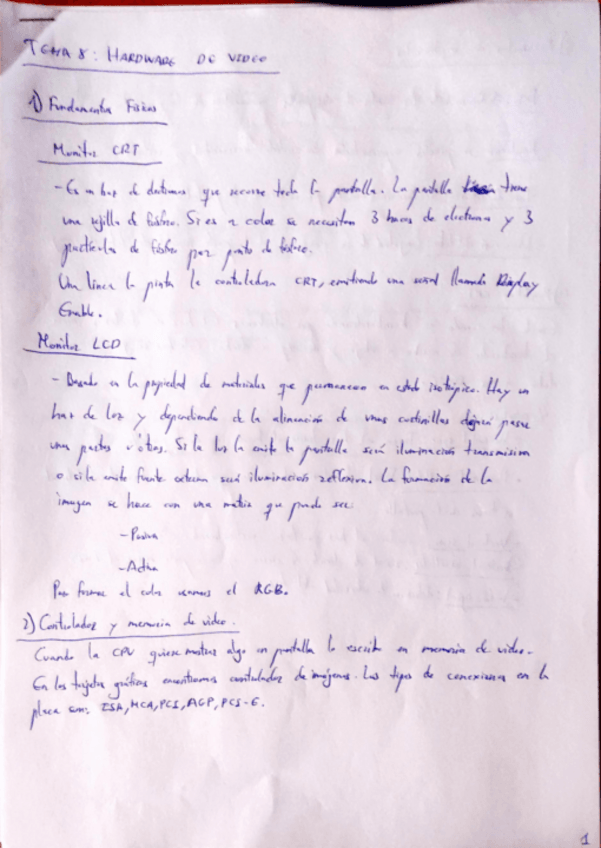 TEMA 8: HARDWARE DE VIDEO
1) Fundamentos Físicos
Monitor CRT
- Es un haz de electrones que recorre toda la pantalla. La pantalla tiene
una rejilla de fósforo. Si es a color se necesitan 3 haces de electrones y 3
partículas de fósforo por punto de fósforo.
Una línea la pinta la controladora CRT, emitiendo una señal llamada Display
Enable.
Monitor LCD
- Basado en la propiedad de materiales que permanecen en estado isotópico. Hay un
haz de luz y dependiendo de la alineación de unas cortinillas dejará pasar
unas partes u otras. Si la luz la emite la pantalla será iluminación transmisiva
o si la emite fuente externa será iluminación reflexiva. La formación de la
imagen se hace con una matriz que puede ser:
- Pasiva
- Activa
Para formar el color usamos el RGB.
2) Controlador y memoria de video.
Cuando la CPU quiere mostrar algo en pantalla lo escribe en memoria de video.
En las tarjetas gráficas encontramos controlador de imágenes. Los tipos de conexiones en la
placa son: ISA, MCA, PCI, AGP, PCS-E.
1